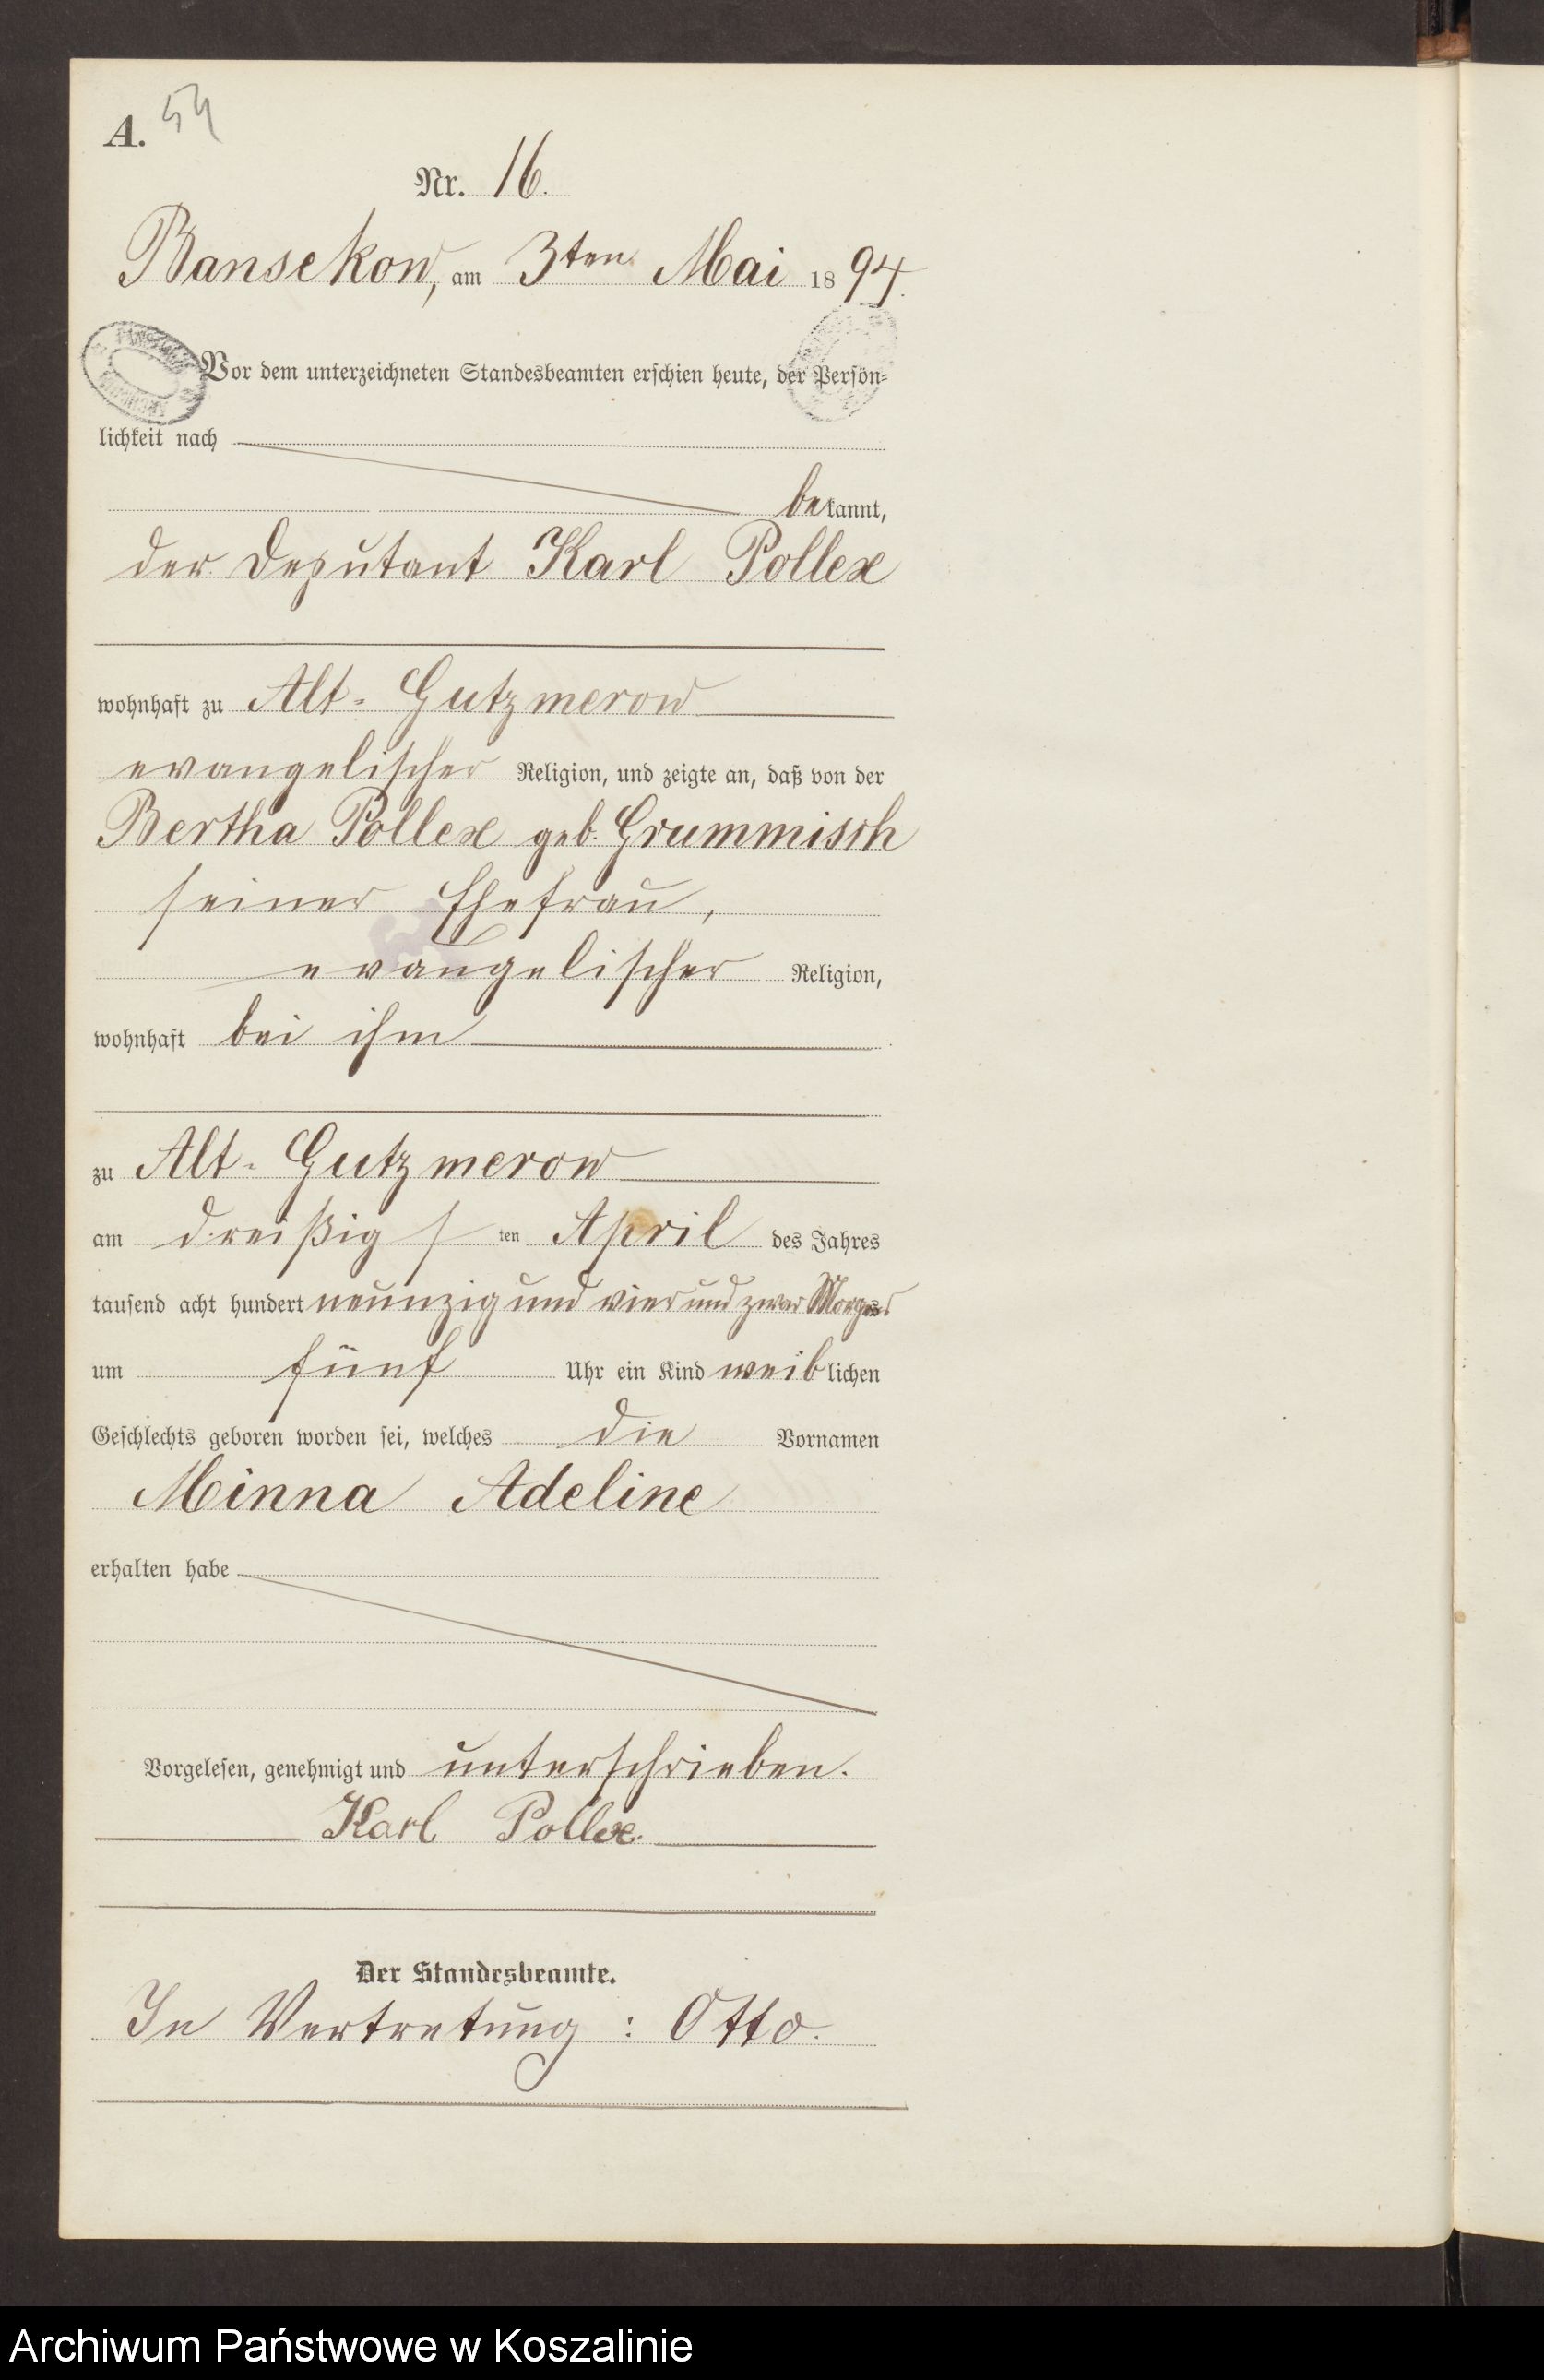 A. 54
Nr. 16.
Bansekow, am 3ten Mai 1894.
Vor dem unterzeichneten Standesbeamten erschien heute, der Persön-
lichkeit nach
bekannt,
der Deputant Karl Pollex
wohnhaft zu Alt-Gutzmerow
evangelischer Religion, und zeigte an, daß von der
Bertha Pollex geb. Grummisch
seiner Ehefrau,
evangelischer Religion,
wohnhaft bei ihm
zu Alt-Gutzmerow
am dreißigsten April des Jahres
tausend acht hundert neunzig und vier und zwar Morgens
um fünf Uhr ein Kind weiblichen
Geschlechts geboren worden sei, welches die Vornamen
Minna Adeline
erhalten habe
Vorgelesen, genehmigt und unterschrieben.
Karl Pollex.
Der Standesbeamte.
In Vertretung: Otto.
Archiwum Państwowe w Koszalinie